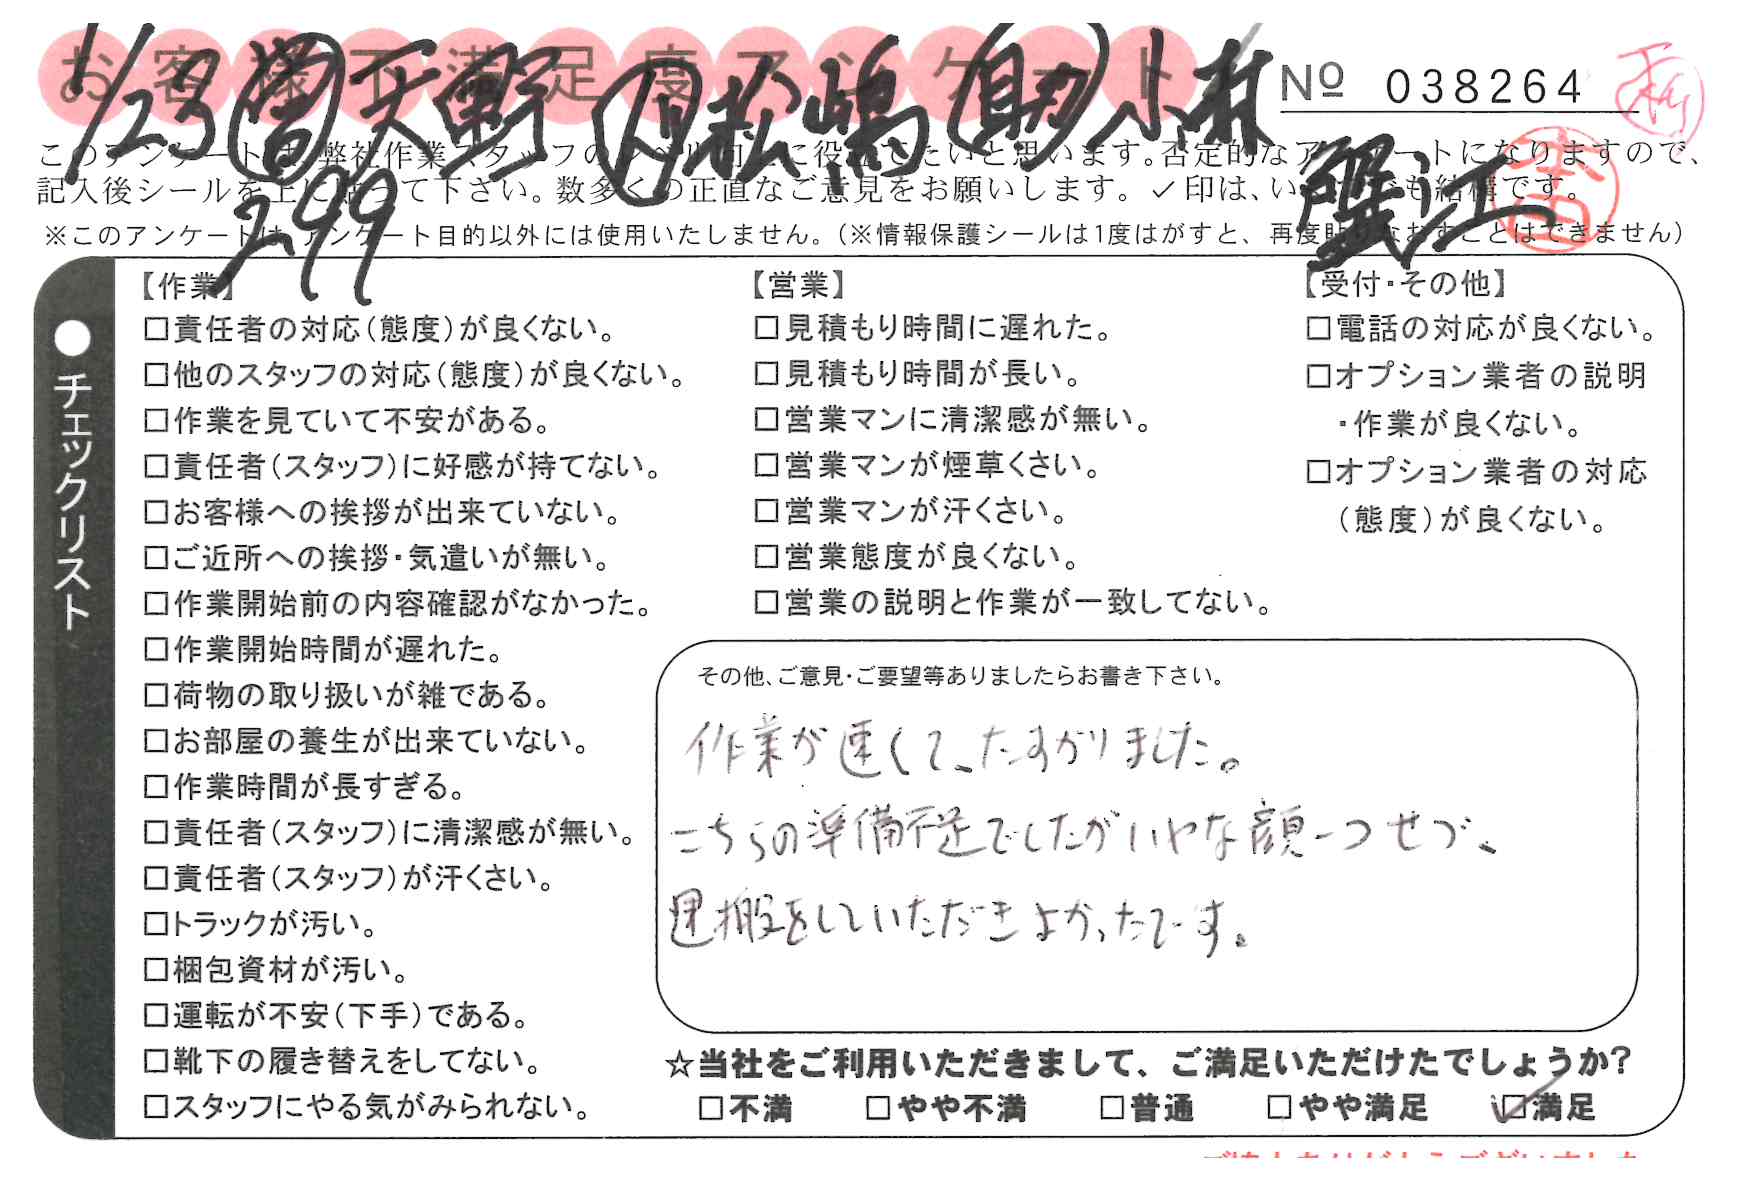 お客様不満足度アンケート
1/23 営 天野 リ 松嶋 助 小林
№ 038264
299
蟹江
このアンケートは、弊社作業スタッフのレベル向上に役立てたいと思います。否定的なアンケートになりますので、
記入後シールを上に貼って下さい。数多くの正直なご意見をお願いします。✓印は、いくつでも結構です。
※このアンケートは、アンケート目的以外には使用いたしません。（※情報保護シールは1度はがすと、再度貼りなおすことはできません）
●チェックリスト
【作業】
□責任者の対応（態度）が良くない。
□他のスタッフの対応（態度）が良くない。
□作業を見ていて不安がある。
□責任者（スタッフ）に好感が持てない。
□お客様への挨拶が出来ていない。
□ご近所への挨拶・気遣いが無い。
□作業開始前の内容確認がなかった。
□作業開始時間が遅れた。
□荷物の取り扱いが雑である。
□お部屋の養生が出来ていない。
□作業時間が長すぎる。
□責任者（スタッフ）に清潔感が無い。
□責任者（スタッフ）が汗くさい。
□トラックが汚い。
□梱包資材が汚い。
□運転が不安（下手）である。
□靴下の履き替えをしてない。
□スタッフにやる気がみられない。
【営業】
□見積もり時間に遅れた。
□見積もり時間が長い。
□営業マンに清潔感が無い。
□営業マンが煙草くさい。
□営業マンが汗くさい。
□営業態度が良くない。
□営業の説明と作業が一致してない。
【受付・その他】
□電話の対応が良くない。
□オプション業者の説明
・作業が良くない。
□オプション業者の対応
（態度）が良くない。
その他、ご意見・ご要望等ありましたらお書き下さい。
作業が速くて、たすかりました。
こちらの準備不足でしたがいやな顔一つせづ、
運搬をしていただきよかったです。
☆当社をご利用いただきまして、ご満足いただけたでしょうか？
□不満 □やや不満 □普通 □やや満足 ☑満足